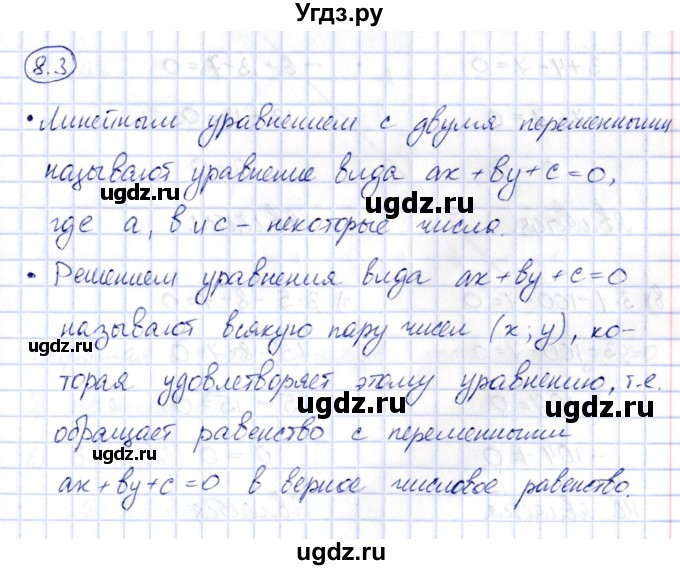 Угдз.ру
8.3
• Линейным уравнением с двумя переменными
называют уравнение вида ax + by + c = 0,
где a, b и c – некоторые числа.
• Решением уравнения вида ax + by + c = 0
называют всякую пару чисел (x; y), ко-
торая удовлетворяет этому уравнению, т.е.
обращает равенство с переменными
ax + by + c = 0 в верное числовое равенство.
ugdz.ru
ugdz.ru
ugdz.ru
ugdz.ru
ugdz.ru
ugdz.ru
ugdz.ru
ugdz.ru
ugdz.ru